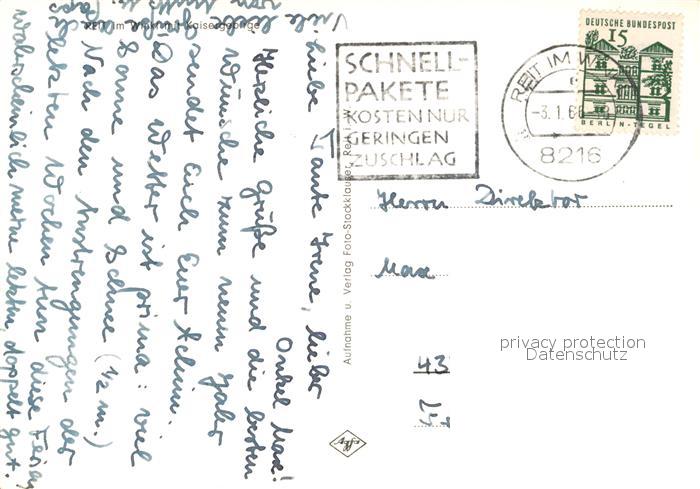 REIT im Winkl mit Kaisergebirge
Viele
Liebe Tante Irene, lieber
Onkel Max!
Herzliche Grüße und die besten
Wünsche zum neuen Jahr
sendet Euch Euer Achim.
Das Wetter ist prima: viel
Sonne und Schnee (1/2 m.)
Nach den Anstrengungen der
letzten Wochen tun diese Ferien,
wahrscheinlich meine letzten, doppelt gut.
Aufnahme u. Verlag Foto-Stockklauser, Reit i. W.
SCHNELL-
PAKETE
KOSTEN NUR
GERINGEN
ZUSCHLAG
REIT IM WINKL
-3.1.66
8216
DEUTSCHE BUNDESPOST
15
BERLIN-TEGEL
Herrn Direktor
Max
43
privacy protection
Datenschutz